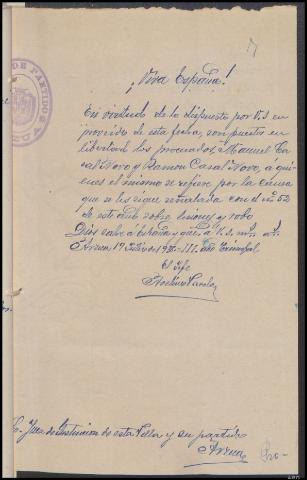 ¡Viva España!
En virtud de lo dispuesto por V.S. en
proveido de esta fecha, son puestos en
libertad los procesados, Manuel Ca
sal Novo y Ramon Casal Novo, á qu
ienes el mismo se refiere por la causa
que se les sigue señalada con el nº 52
de este año sobre lesiones y robo
Dios salve á España y guе á V.S. m. a.
Arzua 17 Julio de 1938 - III. año Triunfal
El Jefe
Sr. Juez de Instruccion de esta Villa y su partido
Arzua